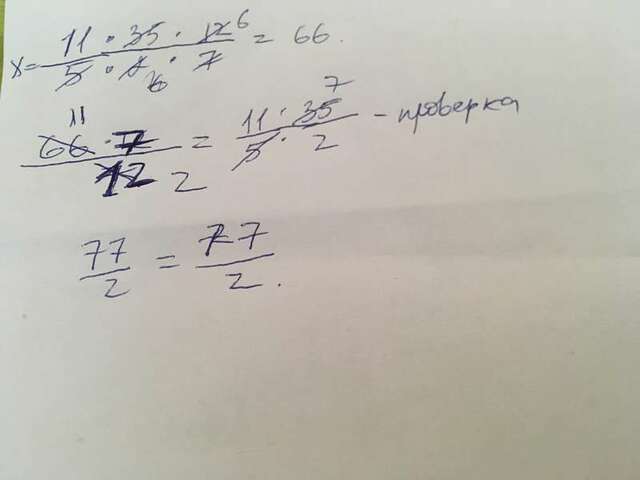 x = 11 · 35 · 12 6 / 5 · 1 · 7 = 66.
11 66 · 7 / 12 2 = 11 · 35 7 / 5 · 2 - проверка
77 / 2 = 77 / 2.